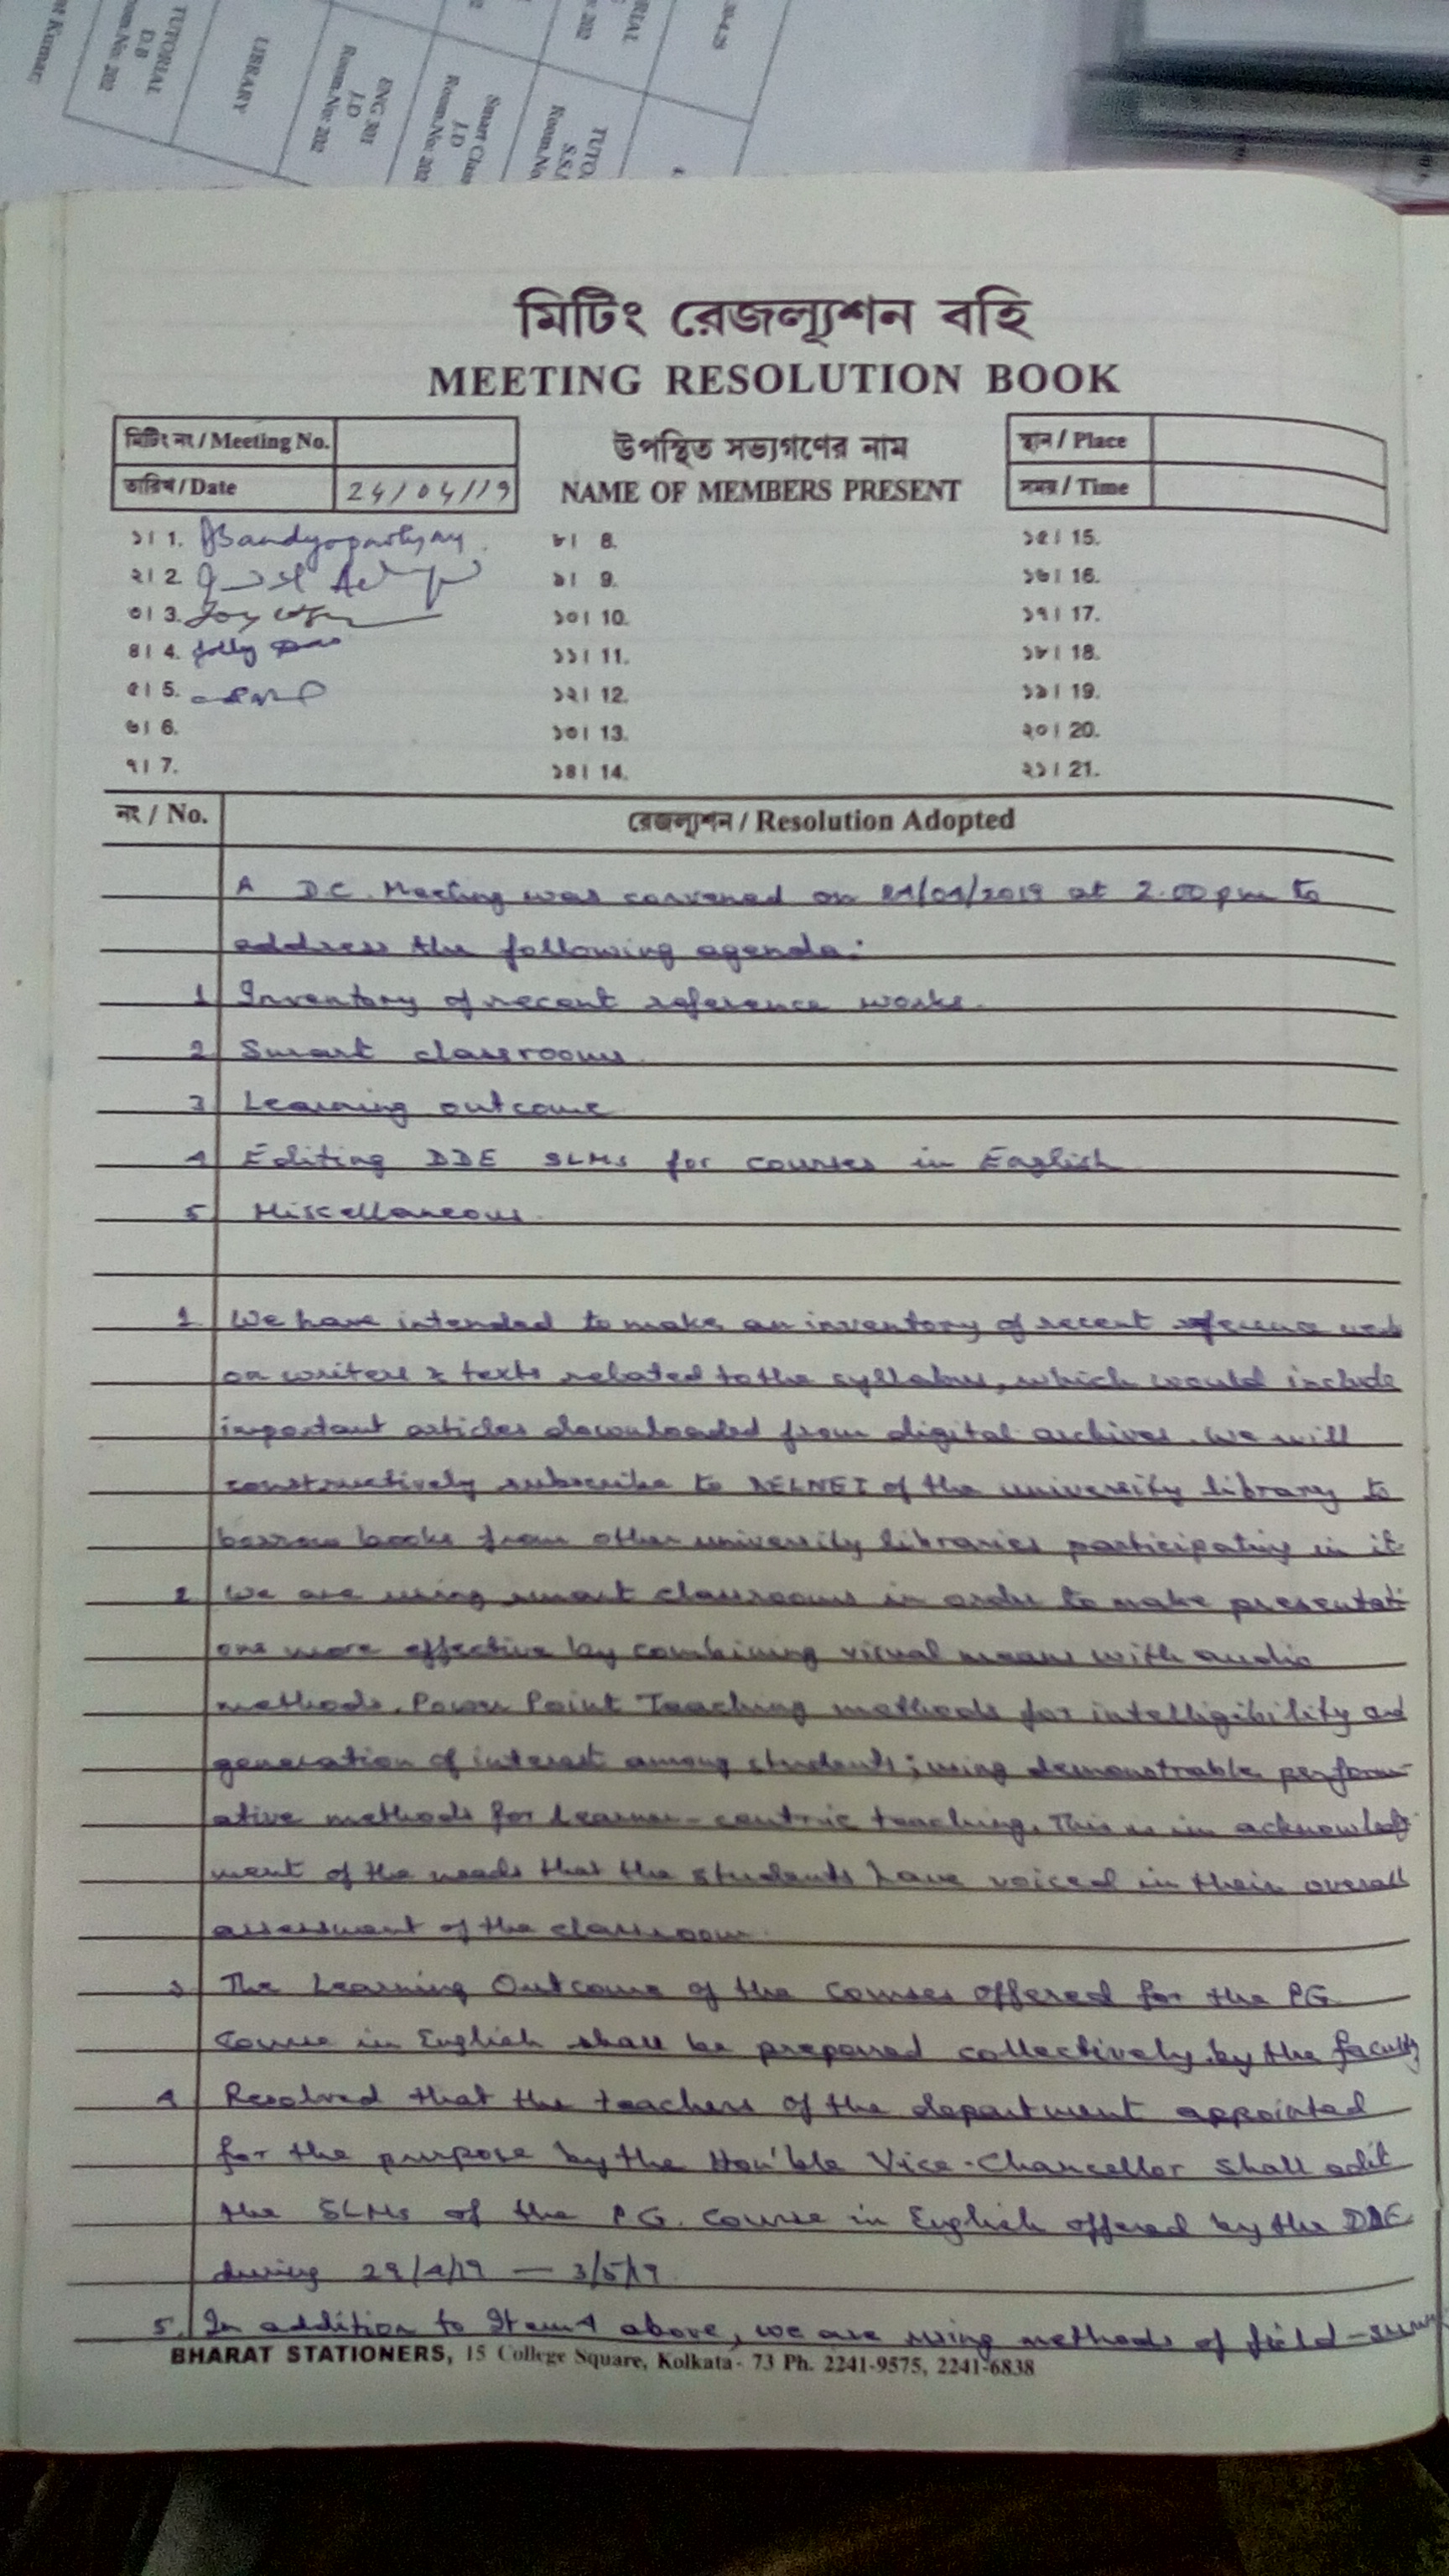 TUTORIAL
D.B
Room.No: 202
LIBRARY
ENG 301
J.D
Room.No: 202
Smart Clas
J.D
Room.No: 202
TUTO
Room.No
মিটিং রেজল্যুশন বহি
MEETING RESOLUTION BOOK
মিটিং নং / Meeting No.
তারিখ / Date 24/04/19
উপস্থিত সভ্যগণের নাম
NAME OF MEMBERS PRESENT
স্থান / Place
সময় / Time
১। 1. Bandyopadhyay
৮। 8.
১৫। 15.
২। 2
৯। 9.
১৬। 16.
৩। 3. Joy
১০। 10.
১৭। 17.
৪। 4. Jolly Das
১১। 11.
১৮। 18.
৫। 5.
১২। 12.
১৯। 19.
৬। 6.
১৩। 13.
২০। 20.
৭। 7.
১৪। 14.
২১। 21.
নং / No.
রেজল্যুশন / Resolution Adopted
A D.C. Meeting was convened on 24/04/2019 at 2.00 pm to
address the following agenda:
1 Inventory of recent reference works.
2 Smart classrooms.
3 Learning outcome
4 Editing DDE SLMs for courses in English
5 Miscellaneous.
1. We have intended to make an inventory of recent reference
on writers & texts related to the syllabus, which would include
important articles downloaded from digital archives. We will
constructively subscribe to DELNET of the university library to
borrow books from other university libraries participating in it
2. We are using smart classrooms in order to make presentati-
ons more effective by combining visual means with audio
methods. Power Point Teaching methods for intelligibility and
generation of interest among students; using demonstrable perform-
ative methods for learner-centric teaching. This is in acknowledg
ment of the needs that the students have voiced in their overall
assessment of the classroom.
3. The Learning Outcome of the Courses offered for the PG
Course in English shall be prepared collectively by the faculty
4 Resolved that the teachers of the department appointed
for the purpose by the Hon'ble Vice-Chancellor shall edit
the SLMs of the P.G. Course in English offered by the DDE
during 29/4/19 — 3/5/19.
5. In addition to Item 4 above, we are using methods of field-
BHARAT STATIONERS, 15 College Square, Kolkata- 73 Ph. 2241-9575, 2241-6838